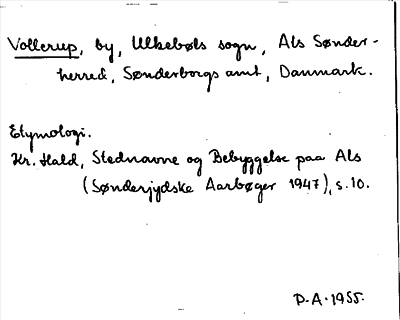 Vollerup, by, Ulkebøls sogn, Als Sønder-
herred, Sønderborgs amt, Danmark.
Etymologi.
Kr. Hald, Stednavne og Bebyggelse paa Als
(Sønderjydske Aarbøger 1947), s. 10.
P.A. 1955.